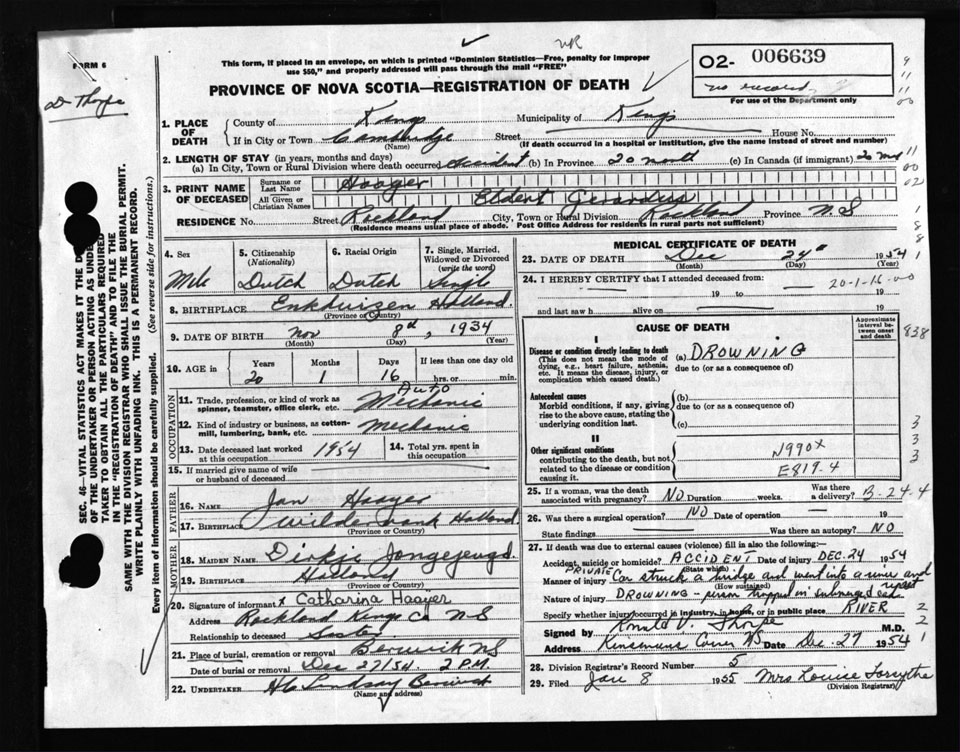 FORM 6
NR
Dr Thorpe
This form, if placed in an envelope, on which is printed "Dominion Statistics—Free, penalty for improper
use $50," and properly addressed will pass through the mail "FREE"
PROVINCE OF NOVA SCOTIA—REGISTRATION OF DEATH
O2- 006639
no record
For use of the Department only
1. PLACE OF DEATH
County of Kings Municipality of Kings
If in City or Town Cambridge Street House No.
(Name) (If death occurred in a hospital or institution, give the name instead of street and number)
2. LENGTH OF STAY (in years, months and days)
(a) In City, Town or Rural Division where death occurred accident (b) In Province 20 month (c) In Canada (if immigrant) 20 mos
3. PRINT NAME OF DECEASED
Surname or Last Name Haayer
All Given or Christian Names Eldert Gerardus
RESIDENCE No. Street Rockland City, Town or Rural Division Rockland Province N.S
(Residence means usual place of abode. Post Office Address for residents in rural parts not sufficient)
4. Sex
Male
5. Citizenship
(Nationality)
Dutch
6. Racial Origin
Dutch
7. Single, Married,
Widowed or Divorced
(write the word)
Single
8. BIRTHPLACE Enkhuizen Holland.
(Province or Country)
9. DATE OF BIRTH Nov 8th, 1934
(Month) (Day) (Year)
10. AGE in
Years Months Days If less than one day old
20 1 16 hrs. or min.
OCCUPATION
11. Trade, profession, or kind of work as
spinner, teamster, office clerk, etc. Auto Mechanic
12. Kind of industry or business, as cotton-
mill, lumbering, bank, etc. Mechanic
13. Date deceased last worked
at this occupation 1954
14. Total yrs. spent in
this occupation
15. If married give name of wife
or husband of deceased
FATHER
16. NAME Jan Haayer
17. BIRTHPLACE Wildervank Holland
(Province or Country)
MOTHER
18. MAIDEN NAME Dirkje Jongejeugd.
19. BIRTHPLACE Holland
(Province or Country)
20. Signature of informant x Catharina Haayer
Address Rockland Kings Co N-S
Relationship to deceased Sister
21. Place of burial, cremation or removal Berwick N S
Date of burial or removal Dec 27/54. 2 P.M.
22. UNDERTAKER H C Lindsay Berwick
(Name and address)
MEDICAL CERTIFICATE OF DEATH
23. DATE OF DEATH Dec 24th 1954
(Month) (Day) (Year)
24. I HEREBY CERTIFY that I attended deceased from:
20-1-16-00
19 to 19
and last saw h alive on 19
CAUSE OF DEATH
Approximate interval between onset and death
I
Disease or condition directly leading to death
(This does not mean the mode of
dying, e.g., heart failure, asthenia,
etc. It means the disease, injury, or
complication which caused death.)
(a) DROWNING
due to (or as a consequence of)
Antecedent causes
Morbid conditions, if any, giving
rise to the above cause, stating the
underlying condition last.
(b)
due to (or as a consequence of)
(c)
II
Other significant conditions
contributing to the death, but not
related to the disease or condition
causing it.
N990X
E819.4
838
25. If a woman, was the death
associated with pregnancy? NO Duration weeks. Was there
a delivery? B-24.4
26. Was there a surgical operation? NO Date of operation 19
State findings Was there an autopsy? NO
27. If death was due to external causes (violence) fill in also the following:—
Accident, suicide or homicide? ACCIDENT Date of injury DEC. 24 1954
(State which)
Manner of injury PRIVATE Car struck a bridge and went into a river and
(How sustained)
Nature of injury DROWNING - person trapped in submerged car
Specify whether injury occurred in industry, in home, or in public place RIVER
Signed by Ronald V. Thorpe M.D.
Address Kinsmans Corner NS Date Dec. 27 1954
28. Division Registrar's Record Number 5
29. Filed Jan 8 1955 Mrs Louise Forsythe
(Division Registrar)
SEC. 46—VITAL STATISTICS ACT MAKES IT THE
OF THE UNDERTAKER OR PERSON ACTING AS UNDE
TAKER TO OBTAIN ALL THE PARTICULARS REQUIRED
IN THE "REGISTRATION OF DEATH" AND TO FILE THE
SAME WITH THE DIVISION REGISTRAR WHO SHALL ISSUE THE BURIAL PERMIT.
WRITE PLAINLY WITH UNFADING INK. THIS IS A PERMANENT RECORD.
Every item of Information should be carefully supplied. (See reverse side for instructions.)